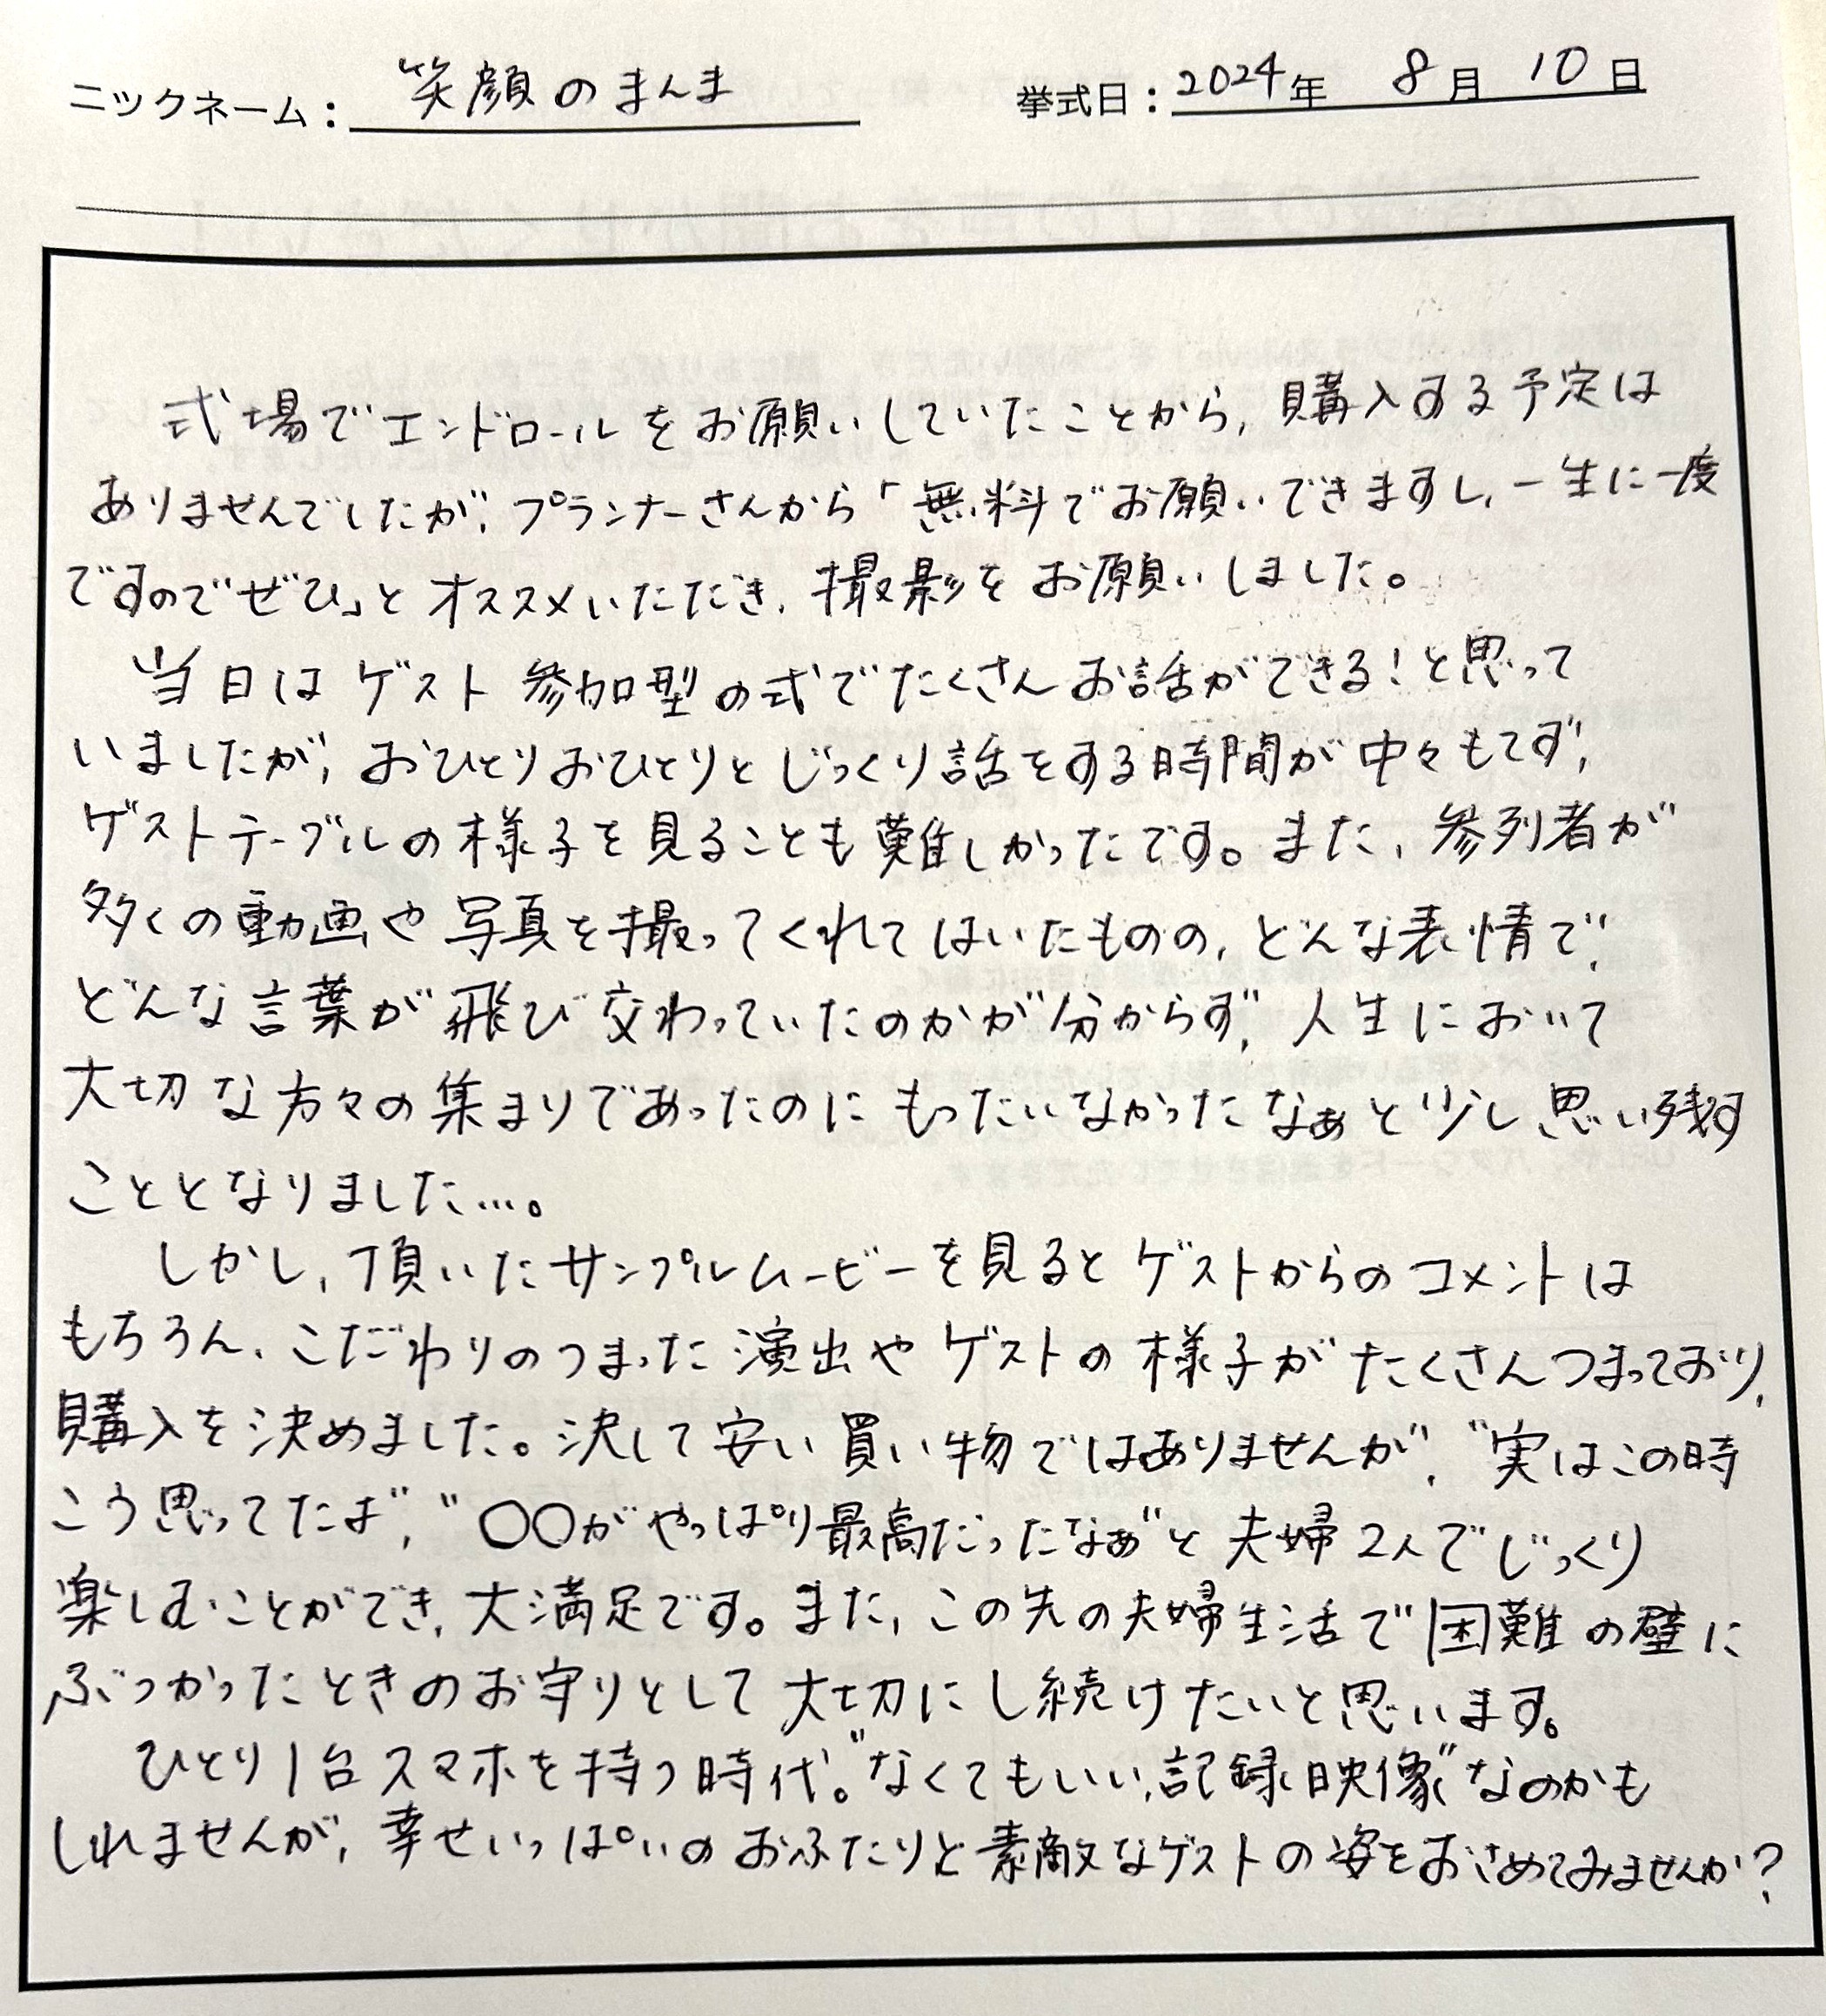 ニックネーム：笑顔のまんま 挙式日：2024年 8月 10日
式場でエンドロールをお願いしていたことから、購入する予定は
ありませんでしたが、プランナーさんから「無料でお願いできますし、一生に一度
ですのでぜひ」とオススメいただき、撮影をお願いしました。
当日はゲスト参加型の式でたくさんお話ができる！と思って
いましたが、おひとりおひとりとじっくり話をする時間が中々もてず、
ゲストテーブルの様子を見ることも難しかったです。また、参列者が
多くの動画や写真を撮ってくれてはいたものの、どんな表情で、
どんな言葉が飛び交わっていたのかが分からず、人生において
大切な方々の集まりであったのにもったいなかったなぁと少し思い残す
こととなりました…。
しかし、頂いたサンプルムービーを見るとゲストからのコメントは
もちろん、こだわりのつまった演出やゲストの様子がたくさんつまっており、
購入を決めました。決して安い買い物ではありませんが、"実はこの時
こう思ってたよ"、"〇〇がやっぱり最高だったなぁ"と夫婦2人でじっくり
楽しむことができ、大満足です。また、この先の夫婦生活で困難の壁に
ぶつかったときのお守りとして大切にし続けたいと思います。
ひとり1台スマホを持つ時代。"なくてもいい記録映像"なのかも
しれませんが、幸せいっぱいのおふたりと素敵なゲストの姿をおさめてみませんか？